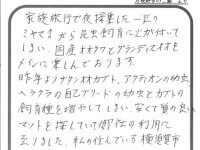 家族旅行で夜採集した一匹の
ミヤマから昆虫飼育に火が付いて
しまい、国産オオクワとグランディスオオを
メインに楽しんでおります。
昨年よりナタンオオカブト、アクティオンの幼虫
ヘラクラの自己ブリードの幼虫とカブトの
飼育種を増やしてしまい、安くて質の良い
マットを探していて御社の利用に
至りました。私の住んでいる横須賀市